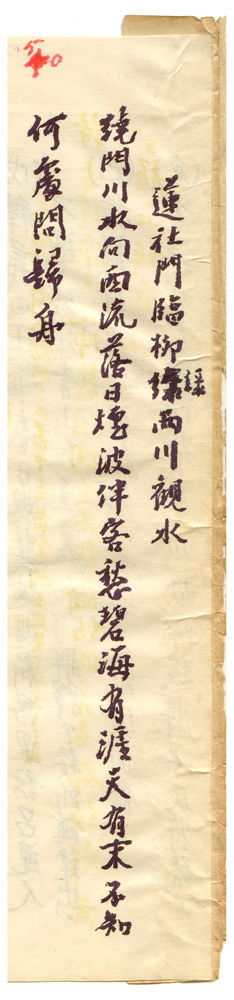 蓮社門臨柳綠西川觀水
繞門川水向西流落日煙波伴客愁碧海有涯天有末不知
何處問歸舟